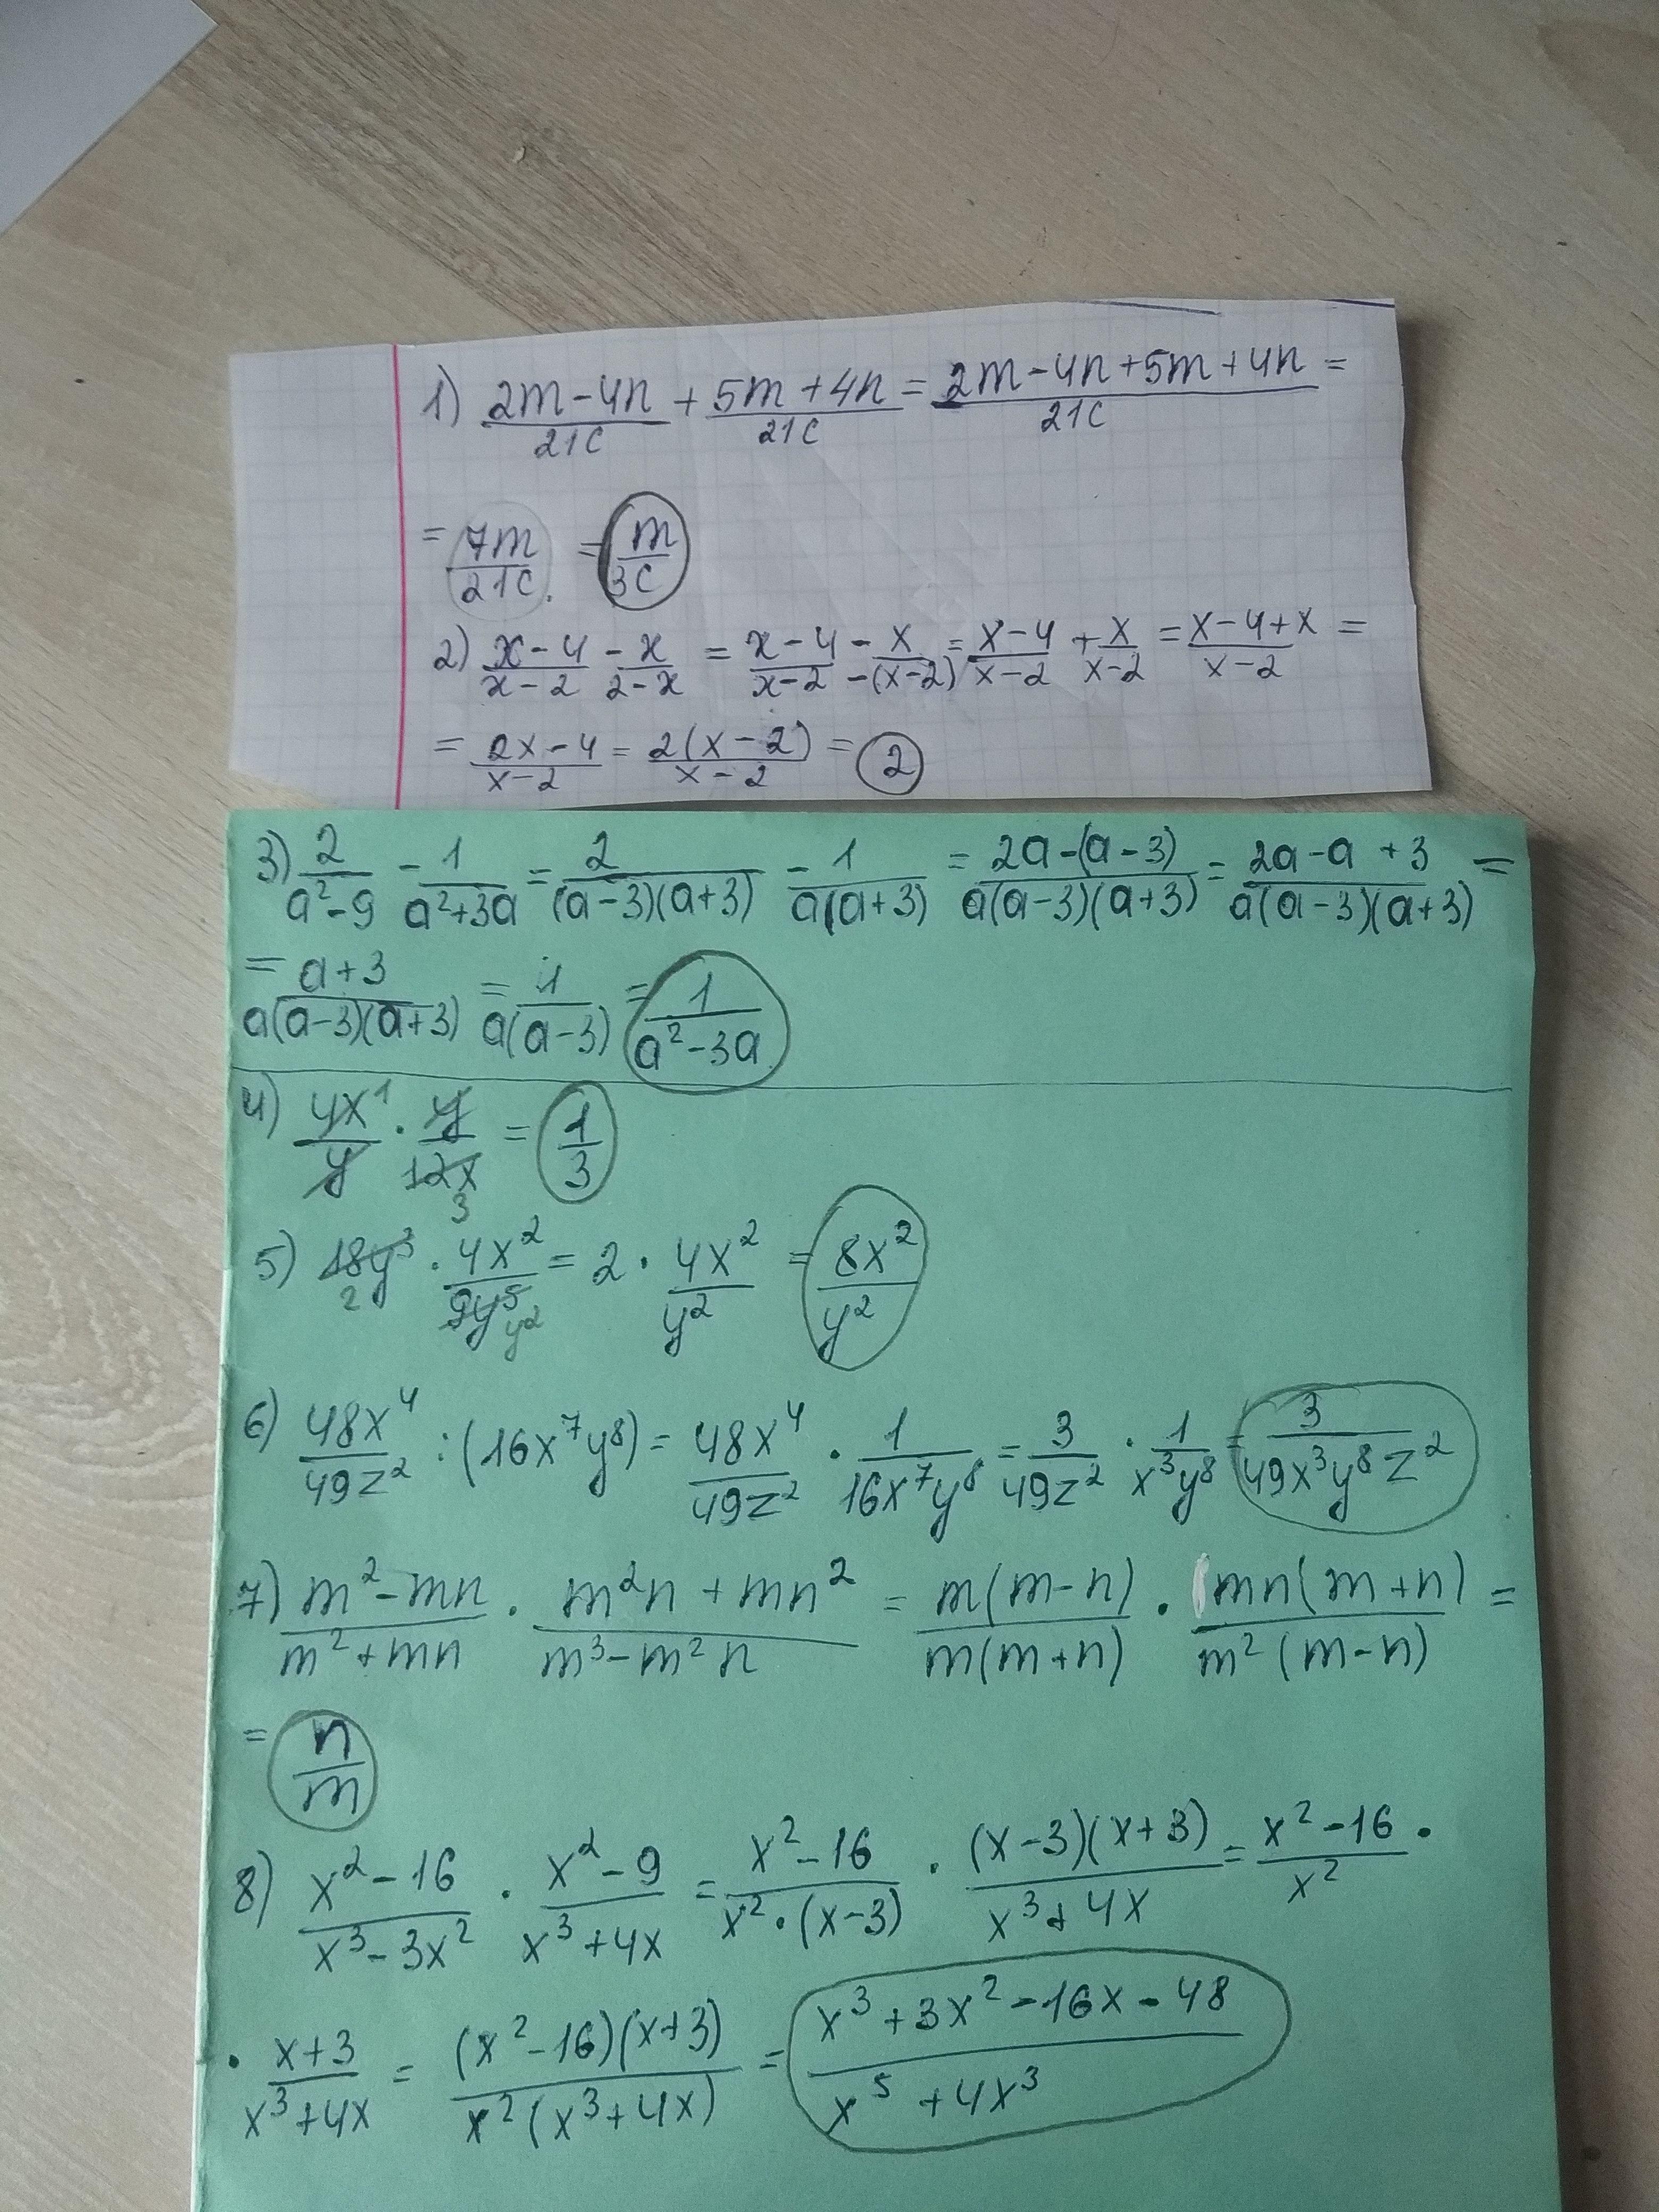 1) (2m-4n)/(21c) + (5m+4n)/(21c) = (2m-4n+5m+4n)/(21c) =
= (7m)/(21c). = m/(3c)
2) (x-4)/(x-2) - x/(2-x) = (x-4)/(x-2) - x/(-(x-2)) = (x-4)/(x-2) + x/(x-2) = (x-4+x)/(x-2) =
= (2x-4)/(x-2) = (2(x-2))/(x-2) = 2
3) 2/(a²-9) - 1/(a²+3a) = 2/((a-3)(a+3)) - 1/(a(a+3)) = (2a-(a-3))/(a(a-3)(a+3)) = (2a-a+3)/(a(a-3)(a+3)) =
= (a+3)/(a(a-3)(a+3)) = 1/(a(a-3)) = 1/(a²-3a)
4) (4x 1)/y · y/(12x 3) = 1/3
5) 18y³ 2 · (4x²)/(9y⁵ y²) = 2 · (4x²)/(y²) = (8x²)/(y²)
6) (48x⁴)/(49z²) : (16x⁷y⁸) = (48x⁴)/(49z²) · 1/(16x⁷y⁸) = 3/(49z²) · 1/(x³y⁸) = 3/(49x³y⁸z²)
7) (m²-mn)/(m²+mn) · (m²n+mn²)/(m³-m²n) = (m(m-n))/(m(m+n)) · (mn(m+n))/(m²(m-n)) =
= n/m
8) (x²-16)/(x³-3x²) · (x²-9)/(x³+4x) = (x²-16)/(x²·(x-3)) · ((x-3)(x+3))/(x³+4x) = (x²-16)/(x²) ·
· (x+3)/(x³+4x) = ((x²-16)(x+3))/(x²(x³+4x)) = (x³+3x²-16x-48)/(x⁵+4x³)